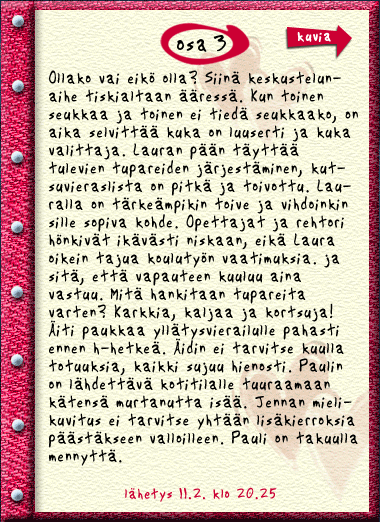 osa 3
kuvia
Ollako vai eikö olla? Siinä keskustelun-
aihe tiskialtaan ääressä. Kun toinen
seukkaa ja toinen ei tiedä seukkaako, on
aika selvittää kuka on luuserti ja kuka
valittaja. Lauran pään täyttää
tulevien tupareiden järjestäminen, kut-
suvieraslista on pitkä ja toivottu. Lau-
ralla on tärkeämpikin toive ja vihdoinkin
sille sopiva kohde. Opettajat ja rehtori
hönkivät ikävästi niskaan, eikä Laura
oikein tajua koulutyön vaatimuksia. ja
sitä, että vapauteen kuuluu aina
vastuu. Mitä hankitaan tupareita
varten? Karkkia, kaljaa ja kortsuja!
Äiti paukkaa yllätysvierailulle pahasti
ennen h-hetkeä. Äidin ei tarvitse kuulla
totuuksia, kaikki sujuu hienosti. Paulin
on lähdettävä kotitilalle tuuraamaan
kätensä murtanutta isää. Jennan mieli-
kuvitus ei tarvitse yhtään lisäkierroksia
päästäkseen valloilleen. Pauli on takuulla
mennyttä.
lähetys 11.2. klo 20.25